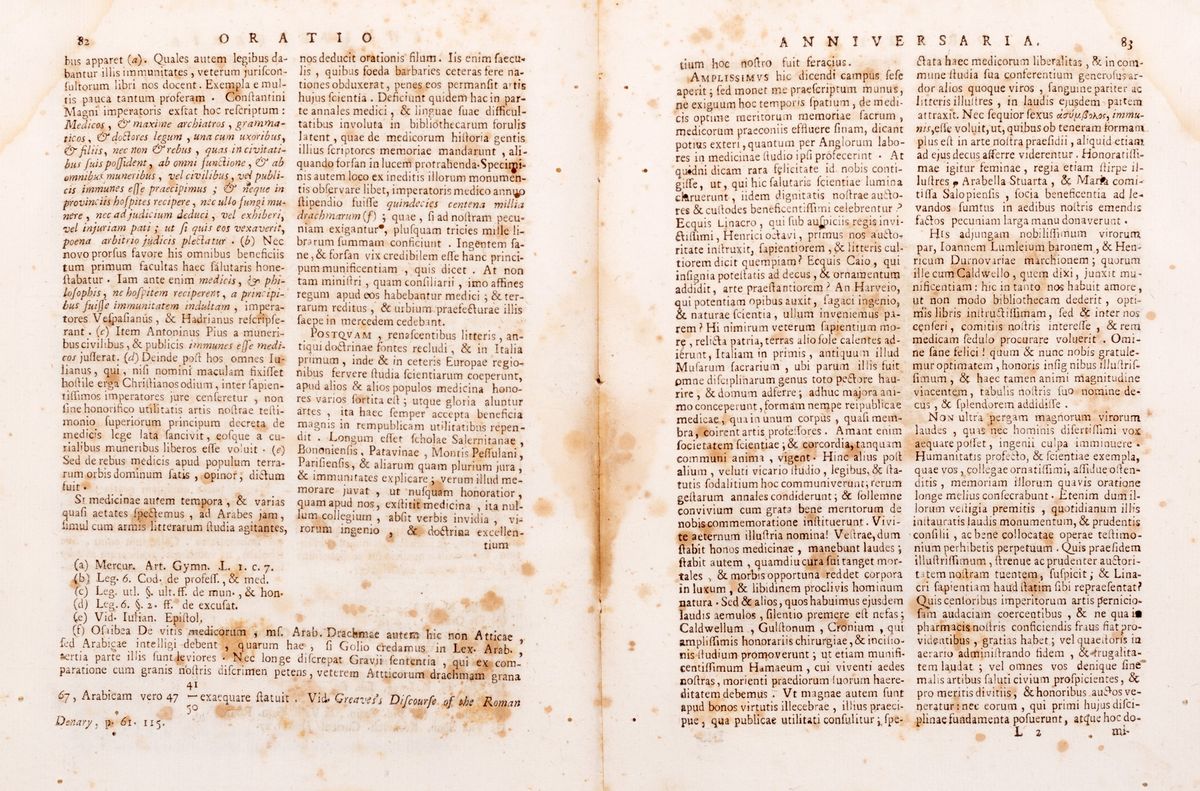 82
ORATIO
bus apparet (a). Quales autem legibus da-
bantur illis immunitates, veterum juriscon-
sultorum libri nos docent. Exempla e mul-
tis pauca tantum proferam. Constantini
Magni imperatoris exstat hoc rescriptum:
Medicos, & maxime archiatros, gramma-
ticos, & doctores legum, una cum uxoribus,
& filiis, nec non & rebus, quas in civitati-
bus suis possident, ab omni functione, & ab
omnibus muneribus, vel civilibus, vel publi-
cis immunes esse praecipimus; & neque in
provinciis hospites recipere, nec ullo fungi mu-
nere, nec ad judicium deduci, vel exhiberi,
vel injuriam pati; ut si quis eos vexaverit,
poena arbitrio judicis plectatur. (b) Nec
novo prorsus favore his omnibus beneficiis
tum primum facultas haec salutaris hone-
stabatur. Iam ante enim medicis, & phi-
losophis, ne hospitem reciperent, a principi-
bus fuisse immunitatem indultam, impera-
tores Vespasianus, & Hadrianus rescripse-
rant. (c) Item Antoninus Pius a muneri-
bus civilibus, & publicis immunes esse medi-
cos jusserat. (d) Deinde post hos omnes Iu-
lianus, qui, nisi nomini maculam fixisset
hostile erga Christianos odium, inter sapien-
tissimos imperatores jure censeretur, non
sine honorifico utilitatis artis nostrae testi-
monio superiorum principum decreta de
medicis lege lata sancivit, eosque a cu-
rialibus muneribus liberos esse voluit. (e)
Sed de rebus medicis apud populum terra-
rum orbis dominum satis, opinor, dictum
fuit.
SI medicinae autem tempora, & varias
quasi aetates spectemus, ad Arabes jam,
simul cum armis litterarum studia agitantes,
nos deducit orationis filum. Iis enim saecu-
lis, quibus foeda barbaries ceteras fere na-
tiones obduxerat, penes eos permansit artis
hujus scientia. Deficiunt quidem hac in par-
te annales medici, & linguae suae difficul-
tatibus involuta in bibliothecarum forulis
latent, quae de medicorum historia gentis
illius scriptores memoriae mandarunt, ali-
quando forsan in lucem protrahenda. Speci-
nis autem loco ex ineditis illorum monumen-
tis observare libet, imperatoris medico annuo
stipendio fuisse quindecies centena millia
drachmarum (f); quae, si ad nostram pecu-
niam exigantur, plusquam tricies mille li-
brarum summam conficiunt. Ingentem sa-
ne, & forsan vix credibilem esse hanc princi-
pum munificentiam, quis dicet. At non
tam ministri, quam consiliarii, imo affines
regum apud eos habebantur medici; & ter-
rarum reditus, & urbium praefecturae illis
saepe in mercedem cedebant.
POSTQVAM, renascentibus litteris, an-
tiqui doctrinae fontes recludi, & in Italia
primum, inde & in ceteris Europae regio-
nibus fervere studia scientiarum coeperunt,
apud alios & alios populos medicina hono-
res varios sortita est; utque gloria aluntur
artes, ita haec semper accepta beneficia
magnis in rempublicam utilitatibus repen-
dit. Longum esset scholae Salernitanae,
Bononiensis, Patavinae, Montis Pessulani,
Parisiensis, & aliarum quam plurium jura,
& immunitates explicare; verum illud me-
morare juvat, ut nusquam honoratior,
quam apud nos, exstitit medicina, ita nul-
lum collegium, absit verbis invidia, vi-
rorum ingenio, & doctrina excellen-
tium
(a) Mercur. Art. Gymn. L. 1. c. 7.
(b) Leg. 6. Cod. de profess. & med.
(c) Leg. utl. §. ult. ff. de mun. & hon.
(d) Leg. 6. §. 2. ff. de excusat.
(e) Vid. Iulian. Epistol.
(f) Ossibea De vitis medicorum, ms. Arab. Drachmae autem hic non Atticae,
sed Arabicae intelligi debent, quarum hae, si Golio credamus in Lex. Arab.
tertia parte illis sunt leviores. Nec longe discrepat Gravii sententia, qui ex com-
paratione cum granis nostris discrimen petens, veterem Atticorum drachmam grana
67, Arabicam vero 47 41/50 exaequare statuit. Vid. Greaves's Discourse of the Roman
Denary, p. 61. 115.
ANNIVERSARIA.
83
tium hoc nostro fuit feracius.
AMPLISSIMVS hic dicendi campus sese
aperit; sed monet me praescriptum munus,
ne exiguum hoc temporis spatium, de medi-
cis optime meritorum memoriae sacrum,
medicorum praeconiis effluere sinam, dicant
potius exteri, quantum per Anglorum labo-
res in medicinae studio ipsi profecerint. At
quidni dicam rara felicitate id nobis conti-
gisse, ut, qui hic salutaris scientiae lumina
claruerunt, iidem dignitatis nostrae aucto-
res & custodes beneficentissimi celebrentur?
Ecquis Linacro, qui sub auspiciis regis invi-
ctissimi, Henrici octavi, primus nos aucto-
ritate instruxit, sapientiorem, & litteris cul-
tiorem dicit quempiam? Ecquis Caio, qui
insignia potestatis ad decus, & ornamentum
addidit, arte praestantiorem? An Harveio,
qui potentiam opibus auxit, sagaci ingenio,
& naturae scientia, ullum inveniemus pa-
rem? Hi nimirum veterum sapientium mo-
re, relicta patria, terras alio sole calentes ad-
ierunt, Italiam in primis, antiquum illud
Musarum sacrarium, ubi parum illis fuit
omne disciplinarum genus toto pectore hau-
rire, & domum adferre; adhuc majora ani-
mo conceperunt, formam nempe reipublicae
medicae, qua in unum corpus, quasi mem-
bra, coirent artis professores. Amant enim
societatem scientiae, & concordia, tanquam
communi anima, vigent. Hinc alius post
alium, veluti vicario studio, legibus, & sta-
tutis sodalitium hoc communiverunt; rerum
gestarum annales condiderunt; & sollemne
convivium cum grata bene meritorum de
nobis commemoratione instituerunt. Vivi-
te aeternum illustria nomina! Vestrae, dum
stabit honos medicinae, manebunt laudes;
stabit autem, quamdiu cura sui tanget mor-
tales, & morbis opportuna reddet corpora
in luxum, & libidinem proclivis hominum
natura. Sed & alios, quos habuimus ejusdem
laudis aemulos, silentio premere est nefas;
Caldwellum, Gulstonum, Cronium, qui
amplissimis honorariis chirurgiae, & incisio-
nis studium promoverunt; ut etiam munifi-
centissimum Hamaeum, cui viventi aedes
nostras, morienti praediorum suorum haere-
ditatem debemus. Vt magnae autem sunt
apud bonos virtutis illecebrae, illius praeci-
pue, qua publicae utilitati consulitur; spe-
ctata haec medicorum liberalitas, & in com-
mune studia sua conferentium generosus ar-
dor alios quoque viros, sanguine pariter ac
litteris illustres, in laudis ejusdem partem
attraxit. Nec sequior sexus ἀσύμβολος, immu-
nis, esse voluit, ut, quibus ob teneram formam
plus est in arte nostra praesidii, aliquid etiam
ad ejus decus afferre viderentur. Honoratissi-
mae igitur feminae, regia etiam stirpe il-
lustres, Arabella Stuarta, & Maria comi-
tissa Salopiensis, socia beneficentia ad le-
vandos sumtus in aedibus nostris emendis
factos pecuniam larga manu donaverunt.
HIS adjungam nobilissimum virorum
par, Ioannem Lumleium baronem, & Hen-
ricum Durnovariae marchionem; quorum
ille cum Caldwello, quem dixi, junxit mu-
nificentiam: hic in tanto nos habuit amore,
ut non modo bibliothecam dederit, opti-
mis libris instructissimam, sed & inter nos
censeri, comitiis nostris interesse, & rem
medicam sedulo procurare voluerit. Omi-
ne sane felici! quum & nunc nobis gratule-
mur optimatem, honoris insignibus illustris-
simum, & haec tamen animi magnitudine
vincentem, tabulis nostris suo nomine de-
cus, & splendorem addidisse.
NON ultra pergam magnorum virorum
laudes, quas nec hominis disertissimi vox
aequare posset, ingenii culpa imminuere.
Humanitatis profecto, & scientiae exempla,
quae vos, collegae ornatissimi, assidue osten-
ditis, memoriam illorum quavis oratione
longe melius consecrabunt. Etenim dum il-
lorum vestigia premitis, quotidianum illis
instauratis laudis monumentum, & prudentis
consilii, ac bene collocatae operae testimo-
nium perhibetis perpetuum. Quis praesidem
illustrissimum, strenue ac prudenter auctori-
tatem nostram tuentem, suspicit; & Lina-
cri sapientiam haud statim sibi repraesentat?
Quis censoribus imperitorum artis pernicio-
sam audaciam coercentibus, & ne qua in
pharmacis nostris conficiendis fraus fiat pro-
videntibus, gratias habet; vel quaestoris in
aerario administrando fidem, & frugalita-
tem laudat; vel omnes vos denique sine
malis artibus saluti civium prospicientes, &
pro meritis divitiis, & honoribus auctos ve-
neratur: nec eorum, qui primi hujus disci-
plinae fundamenta posuerunt, atque hoc do-
L 2
mi-